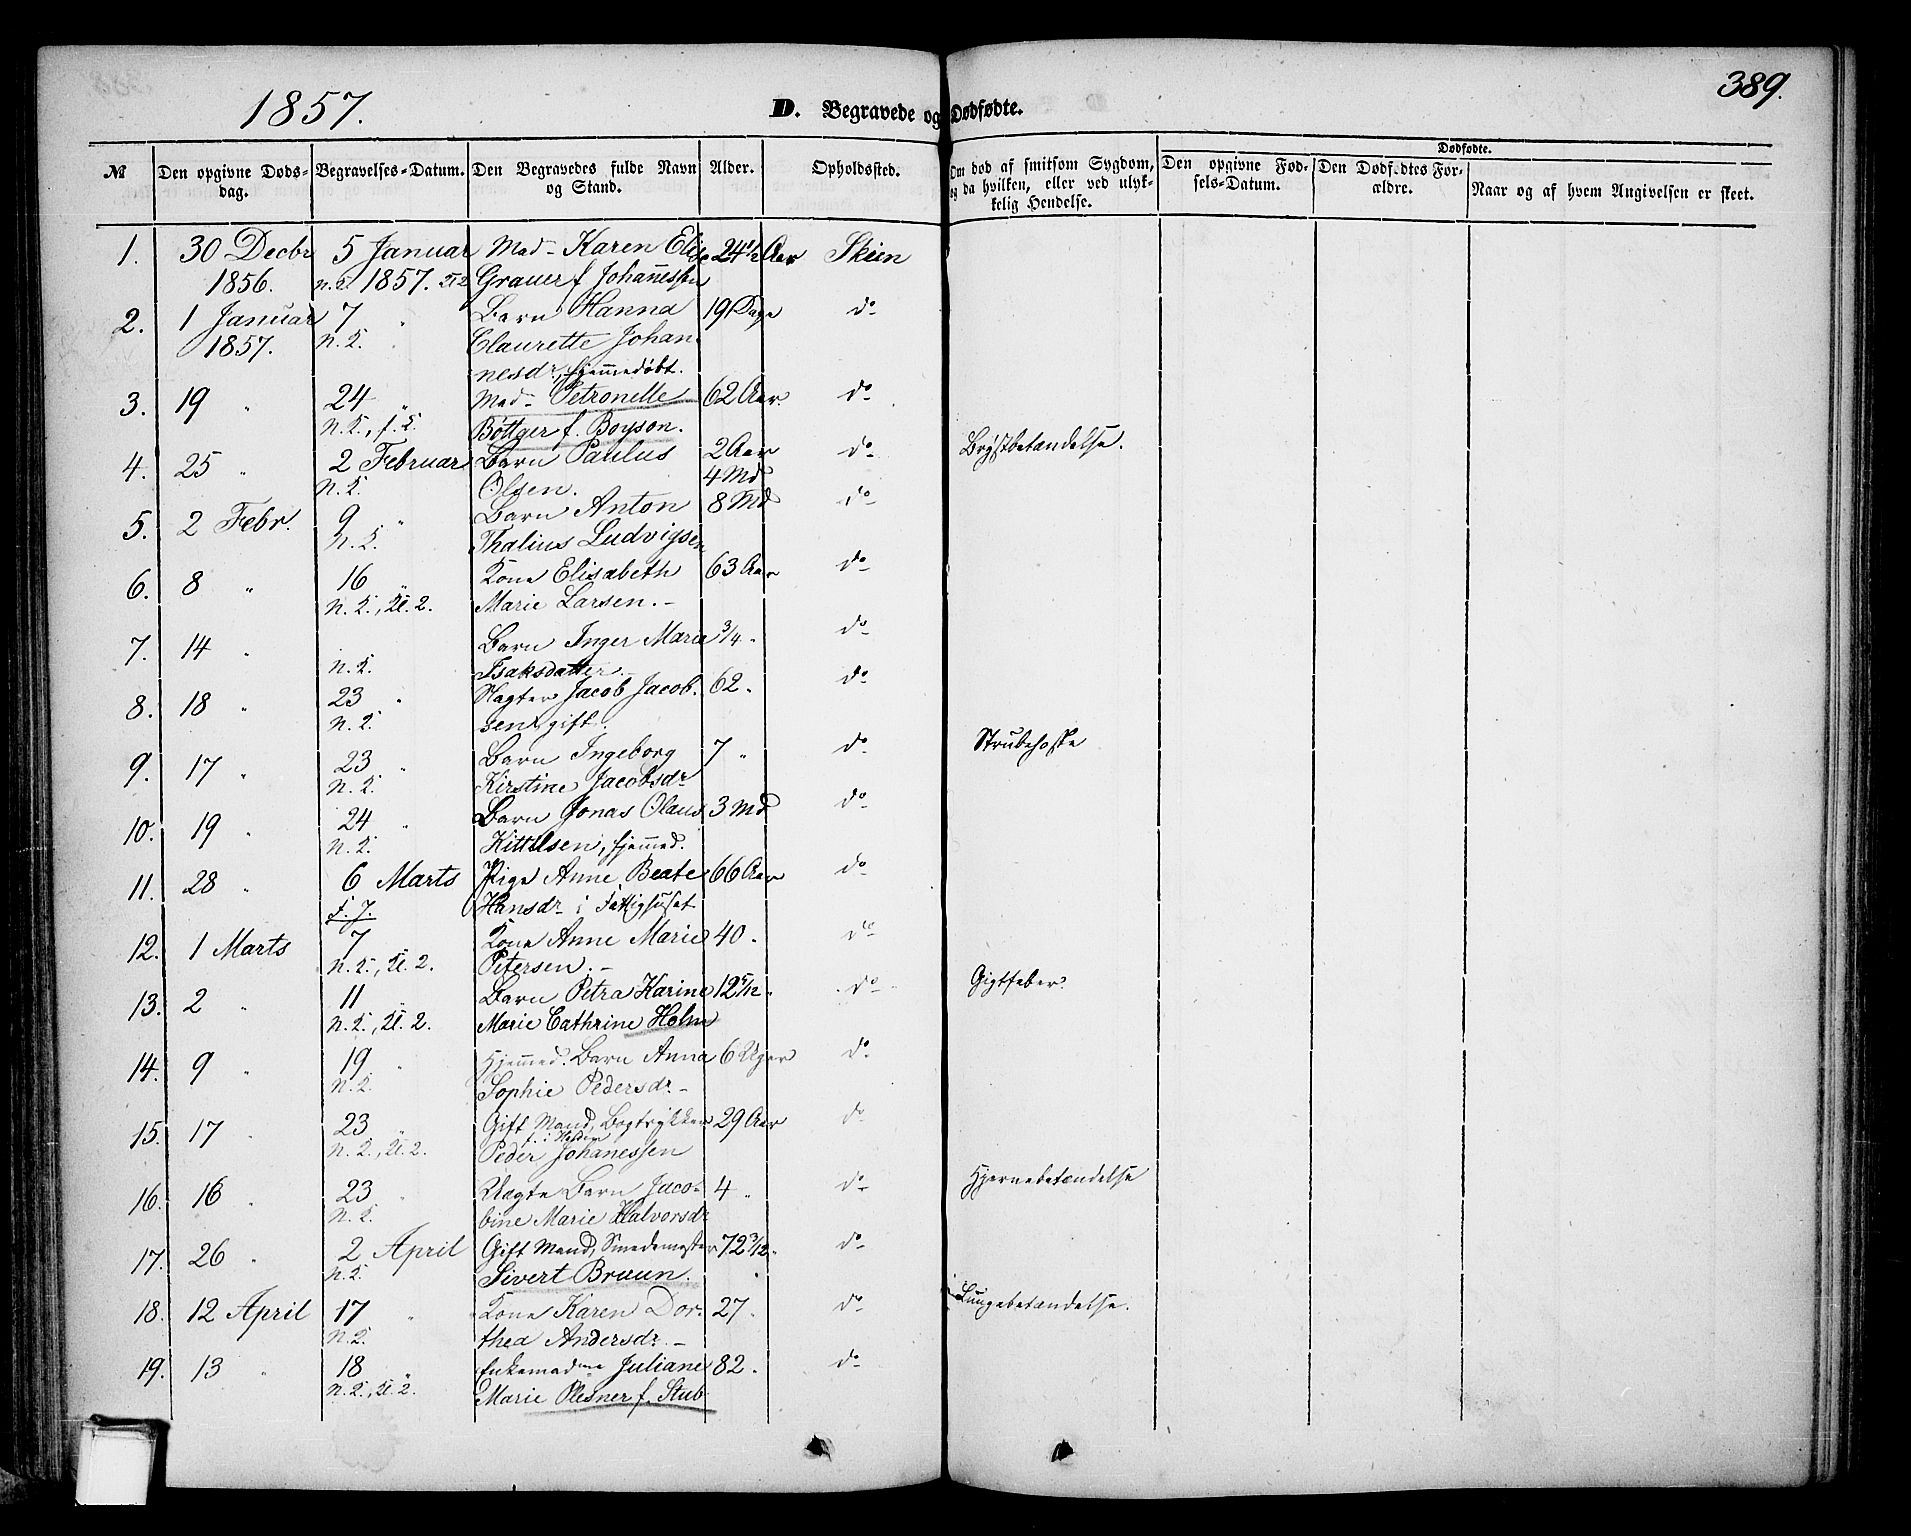 389.
1857.
D. Begravede og Dødfødte.
Dødfødte.
№
Den opgivne Døds-dag.
Begravelses-Datum.
Den Begravedes fulde Navn og Stand.
Alder.
Opholdssted.
Om død af smitsom Sygdom, og da hvilken, eller ved ulyk-kelig Hendelse.
Den opgivne Fød-sels-Datum.
Den Dødfødtes For-ældre.
Naar og af hvem Angivelsen er skeet.
1. 30 Decbr 5 Januar Mad- Karen Elise 24 1/2 Aar Skien
1856. n.K. 1857. Kl 2 Grauer f Johanessen
2. 1 Januar 7 " Barn Hanna 19 Dage do-
1857. n.K. Claurette Johan-
nesdr, hjemmedøbt.
3. 19 " 24 " Mad- Petronelle 62 Aar. do-
n.K., f.K. Böttger f. Boyson.
4. 25 " 2 Februar Barn Paulus 2 Aar do- Brystbetændelse.
n.K. Olsen. 4 Md
5. 2 Febr. 9 " Barn Anton 8 Md do-
n.K. Thalius Ludvigsen
6. 8 " 16 " Kone Elisabeth 63 Aar do-
n.K., Kl. 2. Marie Larsen.-
7. 14 " Barn Inger Maria 3/4 " do-
n.K. Isaksdatter.
8. 18 " 23 " Slagter Jacob Jacob- 62. do-
n.K. sen, gift.
9. 17 " 23 " Barn Ingeborg 7 " do- Strubehoste
n.K. Kirstine Jacobsdr
10. 19 " 24 " Barn Jonas Olaus 3 Md do-
n.K. Kittilsen, hjemmed.
11. 28 " 6 Marts Pige Anne Beate 66 Aar do-
F.J. Hansdr i Fattighuset
12. 1 Marts 7 Kone Anne Marie 40. do-
n.K., Kl. 2. Petersen.-
13. 2 " 11 " Barn Petra Karine 12 5/12 " do- Gigtfeber.
n.K., Kl. 2. Marie Cathrine Holm
14. 9 " 19 " Hjemmed. Barn Anna 6 Uger do-
n.K. Sophie Pedersdr.-
15. 17 " 23 " Gift Mand, Bogtrykker 29 Aar do
n.K., Kl. 2. Peder Johanessen
16. 16 " 23 " Uægte Barn Jaco- 4 " do- Hjernebetændelse
n.K. bine Marie Halvorsdr
17. 26 " 2 April Gift Mand, Smedemester 72 3/12. do-
n.K. Sivert Bruun.
18. 12 April 17 " Kone Karen Dor- 27. do- Lungebetændelse.
n.K. thea Andersdr.-
19. 13 " 18 " Enkemadme Juliane 82. do-
n.K., Kl. 2. Marie Plesner f. Stub